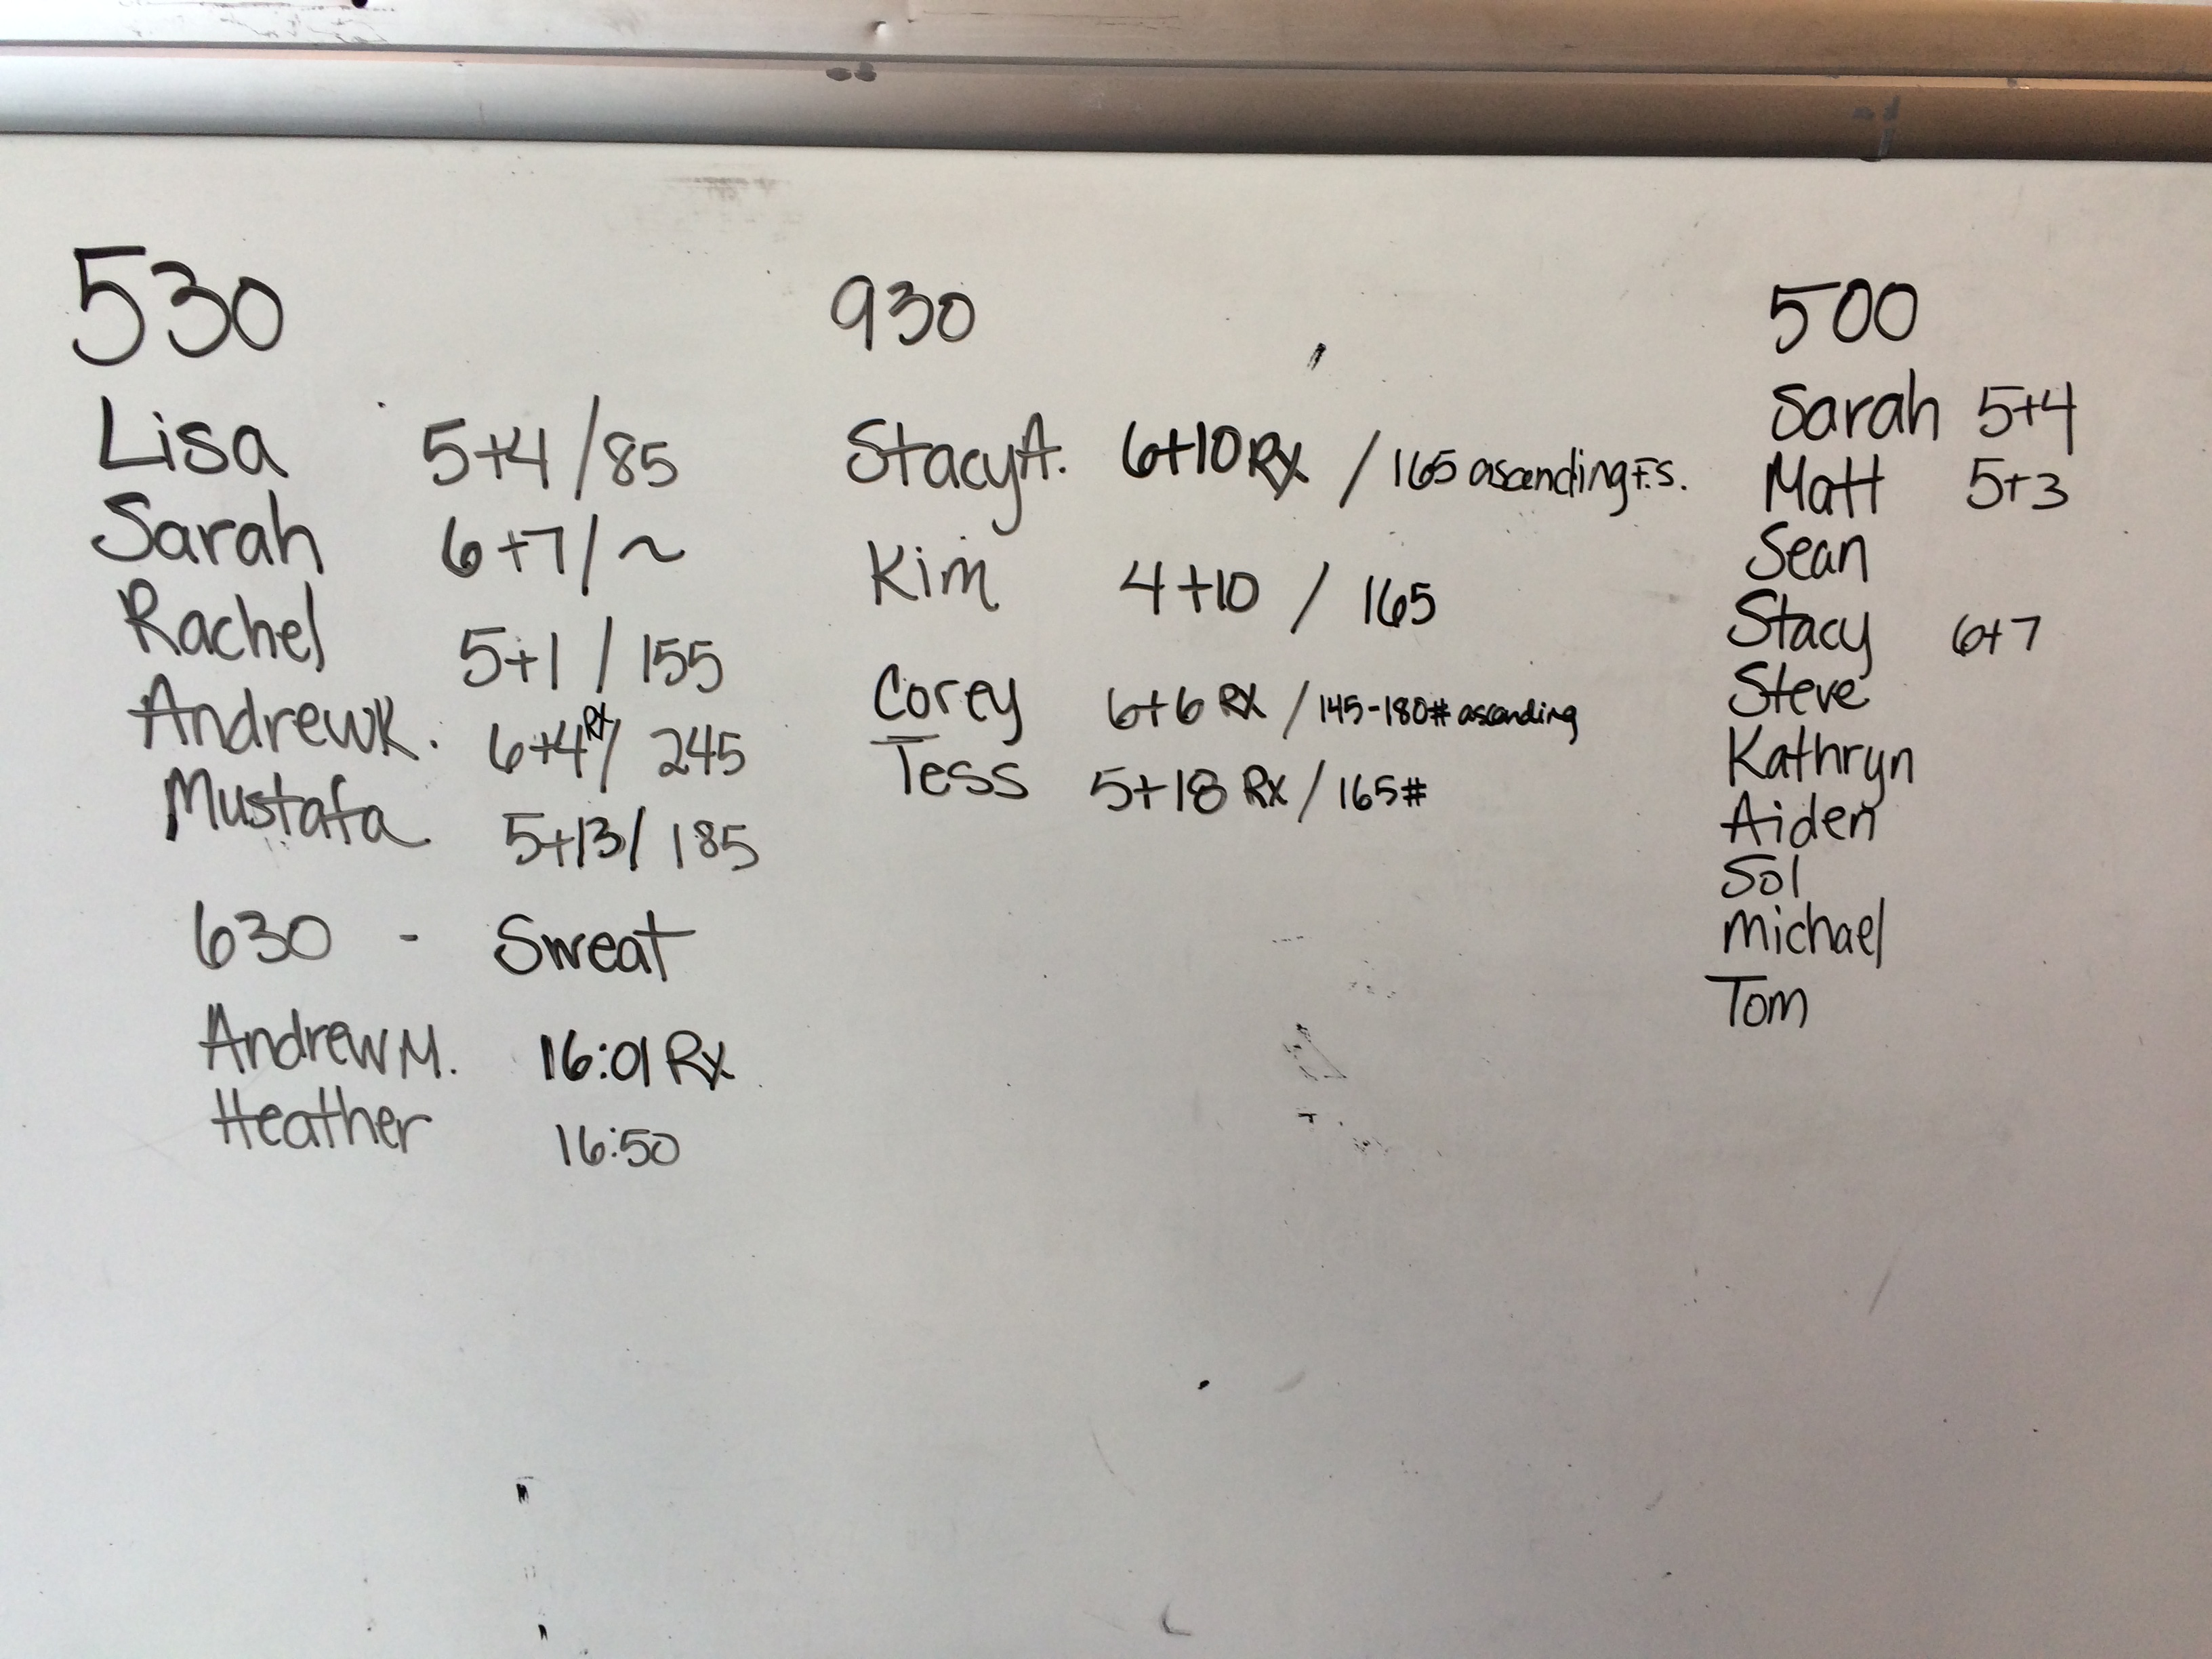 530
Lisa 5+4/85
Sarah 6+7/~
Rachel 5+1/155
Andrew K. 6+4 Rx/ 245
Mustafa 5+13/ 185
630 - Sweat
Andrew M. 16:01 Rx
Heather 16:50
930
Stacy A. 6+10 Rx / 165 ascending F.S.
Kim 4+10 / 165
Corey 6+6 Rx / 145-180# ascending
Tess 5+18 Rx / 165#
500
Sarah 5+4
Matt 5+3
Sean
Stacy 6+7
Steve
Kathryn
Aiden
Sol
Michael
Tom